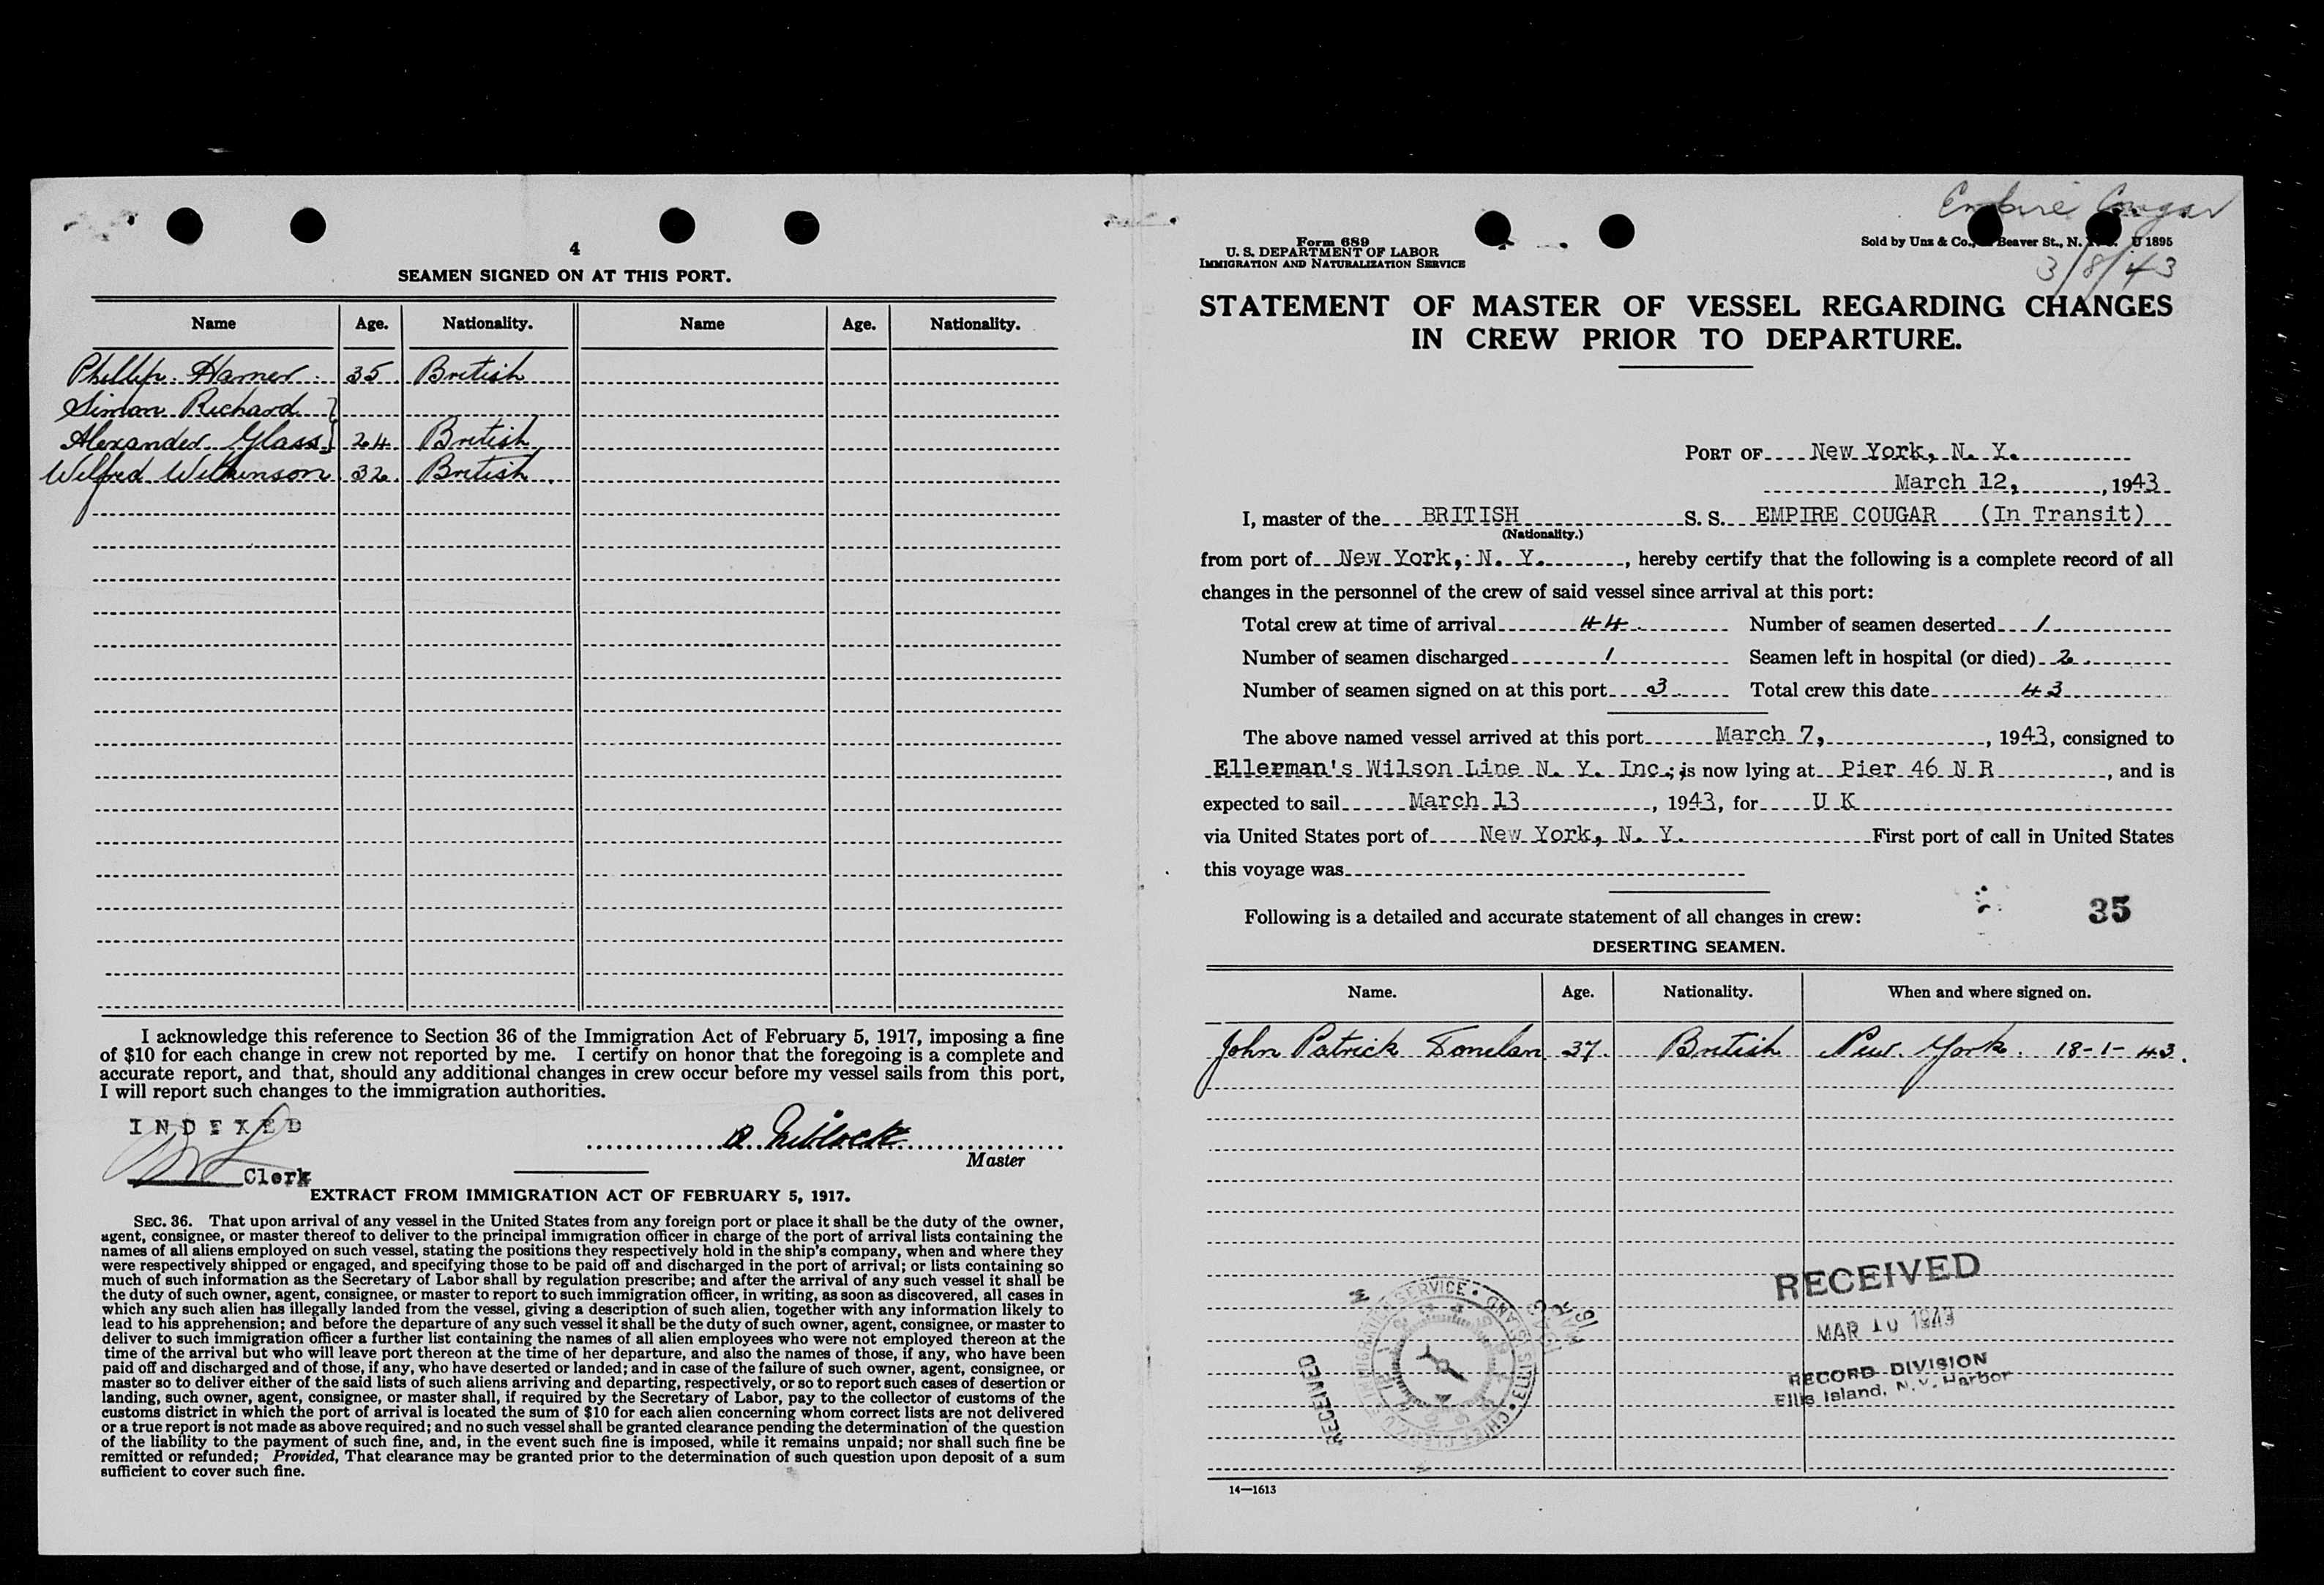 4
SEAMEN SIGNED ON AT THIS PORT.
Name Age. Nationality. Name Age. Nationality.
Phillip Hamer 35 British
Simon Richard
Alexander Glass 24 British
Wilfred Wilkinson 32 British
I acknowledge this reference to Section 36 of the Immigration Act of February 5, 1917, imposing a fine
of $10 for each change in crew not reported by me. I certify on honor that the foregoing is a complete and
accurate report, and that, should any additional changes in crew occur before my vessel sails from this port,
I will report such changes to the immigration authorities.
INDEXED
Clerk
Master
EXTRACT FROM IMMIGRATION ACT OF FEBRUARY 5, 1917.
SEC. 36. That upon arrival of any vessel in the United States from any foreign port or place it shall be the duty of the owner,
agent, consignee, or master thereof to deliver to the principal immigration officer in charge of the port of arrival lists containing the
names of all aliens employed on such vessel, stating the positions they respectively hold in the ship's company, when and where they
were respectively shipped or engaged, and specifying those to be paid off and discharged in the port of arrival; or lists containing so
much of such information as the Secretary of Labor shall by regulation prescribe; and after the arrival of any such vessel it shall be
the duty of such owner, agent, consignee, or master to report to such immigration officer, in writing, as soon as discovered, all cases in
which any such alien has illegally landed from the vessel, giving a description of such alien, together with any information likely to
lead to his apprehension; and before the departure of any such vessel it shall be the duty of such owner, agent, consignee, or master to
deliver to such immigration officer a further list containing the names of all alien employees who were not employed thereon at the
time of the arrival but who will leave port thereon at the time of her departure, and also the names of those, if any, who have been
paid off and discharged and of those, if any, who have deserted or landed; and in case of the failure of such owner, agent, consignee, or
master so to deliver either of the said lists of such aliens arriving and departing, respectively, or so to report such cases of desertion or
landing, such owner, agent, consignee, or master shall, if required by the Secretary of Labor, pay to the collector of customs of the
customs district in which the port of arrival is located the sum of $10 for each alien concerning whom correct lists are not delivered
or a true report is not made as above required; and no such vessel shall be granted clearance pending the determination of the question
of the liability to the payment of such fine, and, in the event such fine is imposed, while it remains unpaid; nor shall such fine be
remitted or refunded; Provided, That clearance may be granted prior to the determination of such question upon deposit of a sum
sufficient to cover such fine.
Empire Cougar
Form 689
U. S. DEPARTMENT OF LABOR
IMMIGRATION AND NATURALIZATION SERVICE
Sold by Unz & Co., Beaver St., N. U 1895
3/8/43
STATEMENT OF MASTER OF VESSEL REGARDING CHANGES
IN CREW PRIOR TO DEPARTURE.
PORT OF New York, N. Y.
March 12, , 1943
I, master of the BRITISH S. S. EMPIRE COUGAR (In Transit)
(Nationality.)
from port of New York, N. Y. , hereby certify that the following is a complete record of all
changes in the personnel of the crew of said vessel since arrival at this port:
Total crew at time of arrival 44 Number of seamen deserted 1
Number of seamen discharged 1 Seamen left in hospital (or died) 2
Number of seamen signed on at this port 3 Total crew this date 43
The above named vessel arrived at this port March 7, , 1943, consigned to
Ellerman's Wilson Line N. Y. Inc.; is now lying at Pier 46 N R , and is
expected to sail March 13 , 1943, for U K
via United States port of New York, N. Y. First port of call in United States
this voyage was
35
Following is a detailed and accurate statement of all changes in crew:
DESERTING SEAMEN.
Name. Age. Nationality. When and where signed on.
John Patrick Donelan 37. British New York. 18-1-43.
RECEIVED
MAR 10 1943
RECORD DIVISION
Ellis Island, N. Y. Harbor
RECEIVED
14—1613